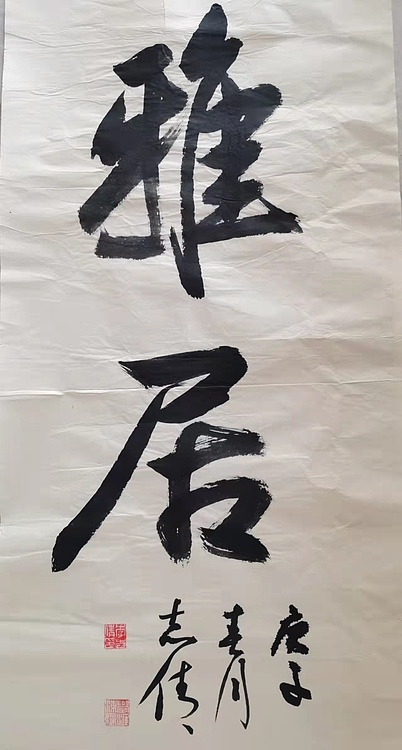 雅居
庚子
春月
志倩